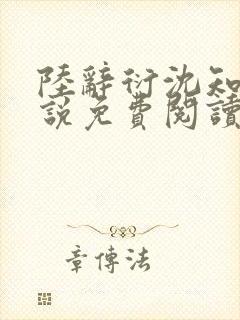 陸辭衍沈知
說免費閱讀
章傳法